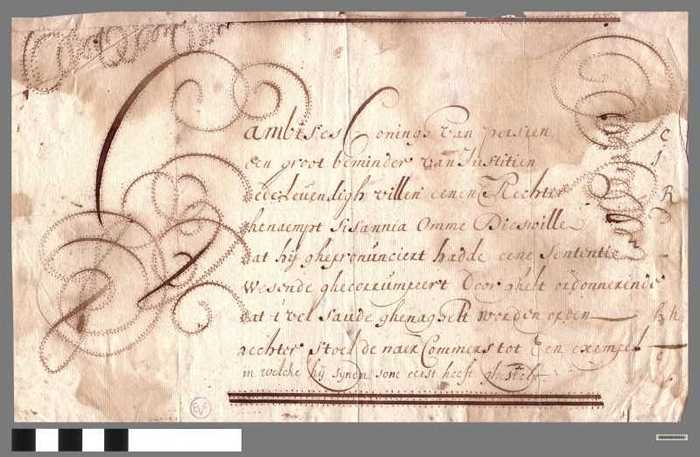 Cambises Conings van persien
een groot beminder van Justitien
dede levendigh villen eenen Rechter
ghenaempt Sisannia Omme Dieswille
dat hij ghepronunciert hadde eene sententie
Wesende ghecorrumpeert Door ghelt ordonnerende
dat t'vel saude ghenaghelt worden op den
rechter stoel de naer Commers tot Een exempel
in welcke hij synen sone eerst heeft ghestelt